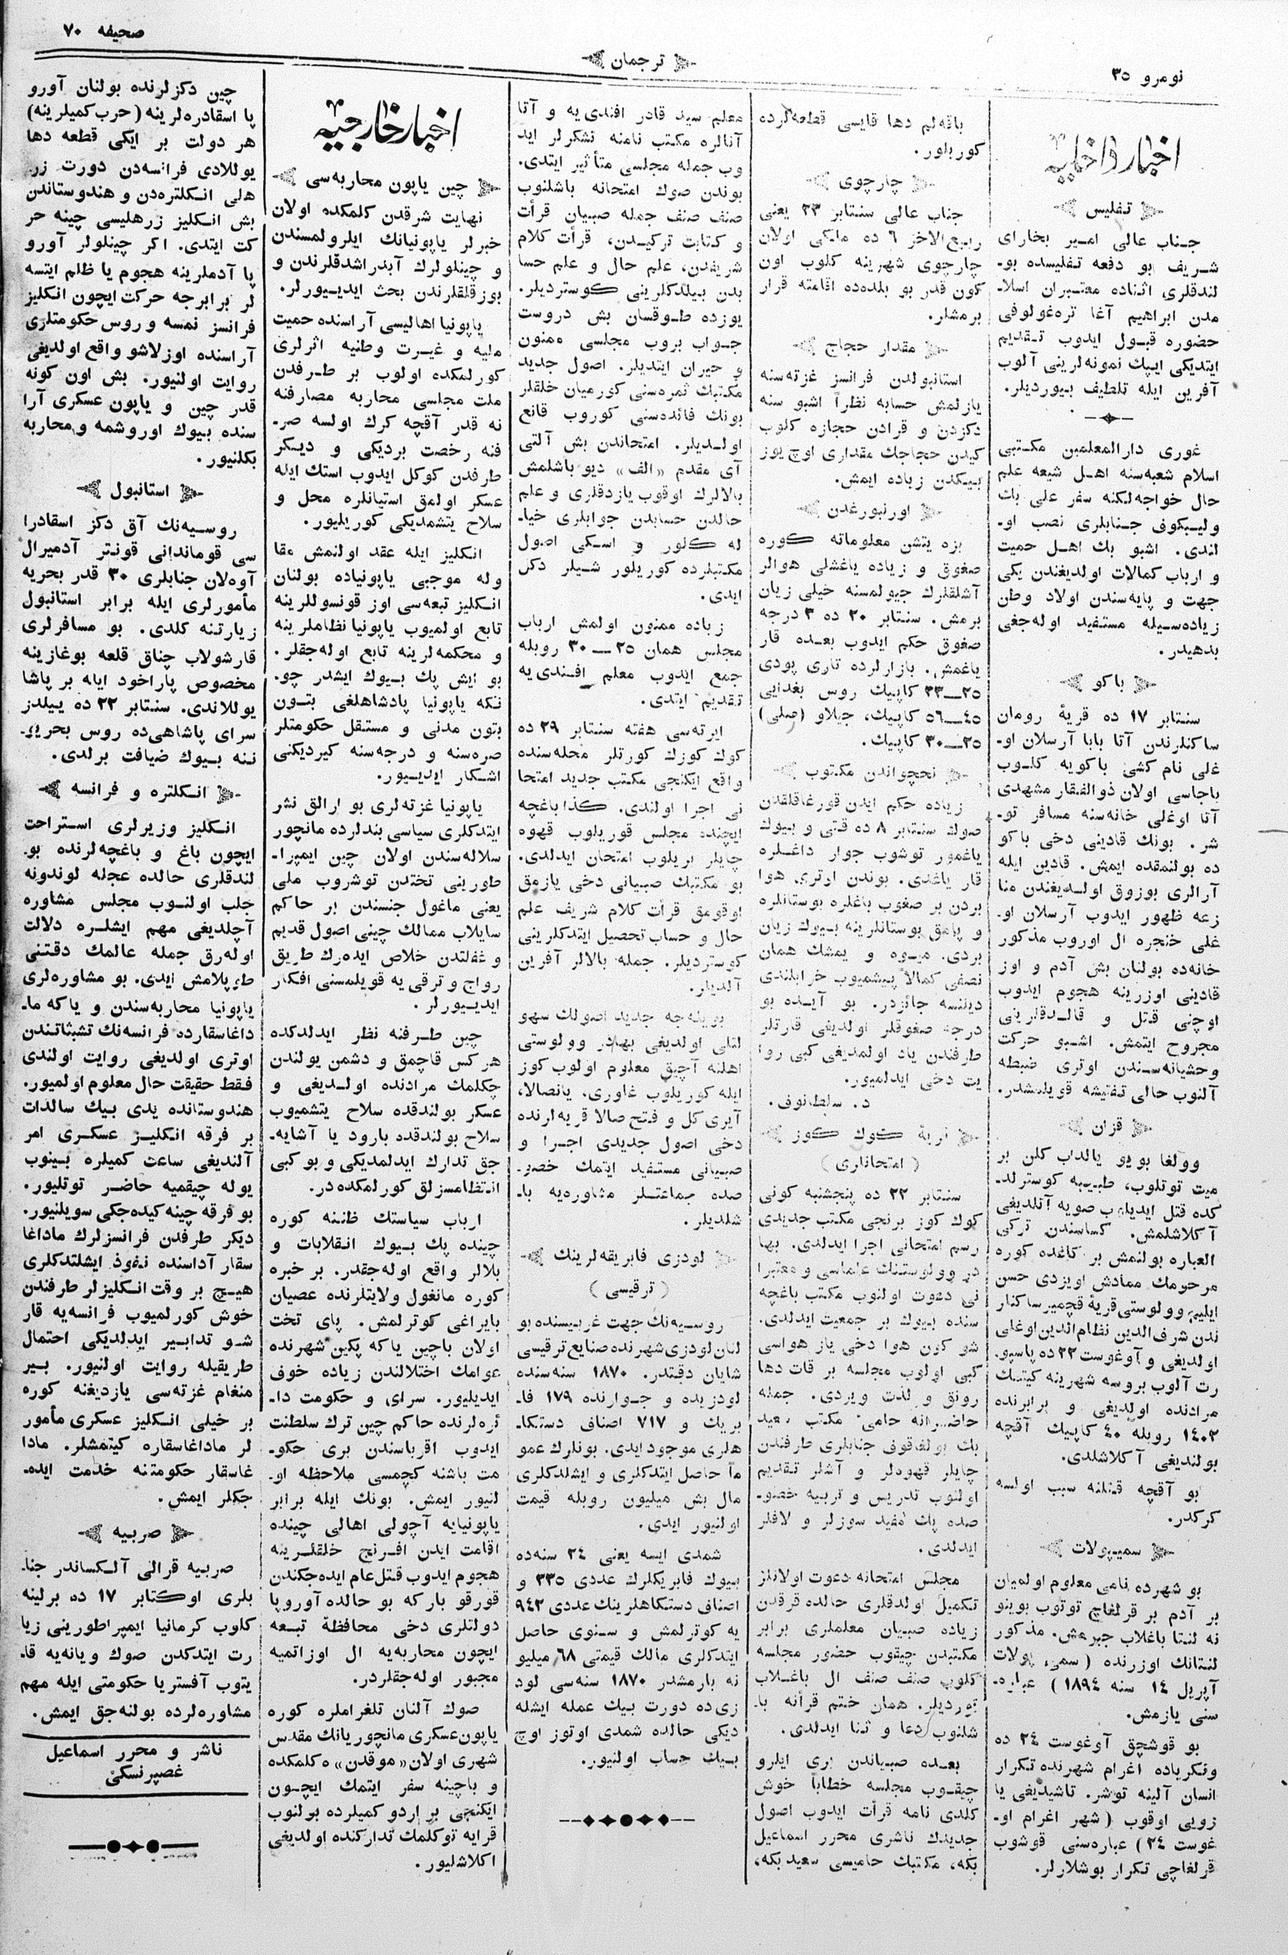 نومرو ٣٥
ترجمان
صحیفه ٧٠
اخبار داخلیه
تفلیس
جناب عالی امیر بخارای
شریف بو دفعه تفلیسده بو-
لندقلری اثناده معتبران اسلا-
مدن ابراهیم آغا تره‌غولوفی
حضوره قبول ایدوب تقدیم
ایتدیکی ایپک نمونه‌لرینی آلوب
آفرین ایله تلطیف بیوردیلر.
غوری دارالمعلمین مکتبی
اسلام شعبه‌سنه اهل شیعه علم
حال خواجه‌لکنه سفر علی بك
ولیبکوف جنابلری نصب او-
لندی. اشبو بك اهل حمیت
و ارباب کمالات اولدیغندن یکی
جهت و پایه‌سندن اولاد وطن
زیاده‌سیله مستفید اوله‌جغی
بدهیدر.
باکو
سنتابر ١٧ ده قریهٔ رومان
ساکنلرندن آتا بابا آرسلان او-
غلی نام کشی باکویه کلوب
باجاسی اولان ذوالفقار مشهدی
آتا اوغلی خانه‌سنه مسافر تو-
شر. بونك قادینی دخی باکو
ده بولنمقده ایمش. قادین ایله
آرالری بوزوق اولدیغندن منا
زعه ظهور ایدوب آرسلان او-
غلی خنجره ال اوروب مذکور
خانه‌ده بولنان بش آدم و اوز
قادینی اوزرینه هجوم ایدوب
اوچنی قتل و قالدقلرینی
مجروح ایتمش. اشبو حرکت
وحشیانه‌سندن اوتری ضبطه
آلنوب حالی تفتیشه قویلمشدر.
قزان
وولغا بویو یالداب کلن بر
میت توتلوب، طبیبه کوسترلد-
کده قتل ایدیلوب صویه آتلدیغی
آکلاشلمش. کساسندن ترکی
العباره بولنمش بر کاغده کوره
مرحومك ممادش اویزدی حسن
ایلیپ وولوستی قریهٔ قچمیر ساکنلر
ندن شرف‌الدین نظام‌الدین اوغلی
اولدیغی و آوغوست ٢٢ ده پاسپو-
رت آلوب بروسه شهرینه کیتمك
مرادنده اولدیغی و برابرنده
١٤٠٢ روبله ٤٠ کاپیك آقچه
بولندیغی آکلاشلدی.
بو آقچه قتلنه سبب اولسه
کرکدر.
سمیپولات
بو شهرده نامی معلوم اولمیان
بر آدم بر قرلغاچ توتوب بوینو
نه لنتا باغلاب جبرمش. مذکور
لنتانك اوزرنده (سمی پولات
آپریل ١٤ سنه ١٨٩٤) عباره-
سنی یازمش.
بو قوشچق آوغوست ٢٤ ده
ونکریاده اغرام شهرنده تکرار
انسان آلینه توشر. تاشیدیغی یا
زویی اوقوب (شهر اغرام او-
غوست ٢٤) عباره‌سنی قوشوب
قرلغاچی تکرار بوشلارلر.
باقه‌لم دها قایسی قطعه‌لرده
کوریلور.
چارجوی
جناب عالی سنتابر ٢٣ یعنی
ربیع‌الاخر ٦ ده مالکی اولان
چارجوی شهرینه کلوب اون
کون قدر بو بلده‌ده اقامته قرار
برمشلر.
مقدار حجاج
استانبولدن فرانسز غزته‌سنه
یازلمش حسابه نظراً اشبو سنه
دکزدن و قرادن حجازه کلوب
کیدن حجاجك مقداری اوچ یوز
بیکدن زیاده ایمش.
اورنبورغدن
بزه یتشن معلوماته کوره
صغوق و زیاده یاغشلی هوالر
آشلقلرك جیولمسنه خیلی زیان
برمش. سنتابر ٢٠ ده ٣ درجه
صغوق حکم ایدوب بعده قار
یاغمش. بازارلرده تاری پودی
٢٥—٣٣ کاپیك روس بغدایی
٤٥—٥٦ کاپیك، جیلاو (صلی)
٢٥—٣٠ کاپیك.
نخچواندن مکتوب
زیاده حکم ایدن قورغاقلقدن
صوك سنتابر ٨ ده قتی و بیوك
یاغمور توشوب جوار داغلره
قار یاغدی. بوندن اوتری هوا
بردن بر صغوب باغلره بوستانلره
و پامق بوستانلرینه بیوك زیان
بردی. میوه و یمشك همان
نصفی کمالاً پیشمیوب خرابلندی
دیننسه جائزدر. بو آیده بو
درجه صغوقلر اولدیغی قارتلر
طرفندن یاد اولمدیغی کبی روا
یت دخی ایدلمیور.
د. سلطانوف.
قریهٔ کوك کوز
(امتحانلری)
سنتابر ٢٢ ده پنجشنبه کونی
کوك کوز برنجی مکتب جدیدی
رسم امتحانی اجرا ایدلدی. بها
در وولوستنك علماسی و معتبرا
نی دعوت اولنوب مکتب باغچه
سنده بیوك بر جمعیت ایدلدی.
شو کون هوا دخی یاز هواسی
کبی اولوب مجلسه بر قات دها
رونق و لذت ویردی. جمله
حاضرانه حامیٔ مکتب سعید
بك بولغاقوف جنابلری طرفندن
چایلر قهوه‌لر و آشلر تقدیم
اولنوب تدریس و تربیه خصو-
صده پك مفید سوزلر و لافلر
ایدلدی.
مجلس امتحانه دعوت اولانلر
تکمیل اولدقلری حالده قرقدن
زیاده صبیان معلملری برابر
مکتبدن چیقوب حضور مجلسه
کلوب صنف صنف ال باغلاب
توردیلر. همان ختم قرآنه با-
شلنوب دعا و ثنا ایدلدی.
بعده صبیاندن بری ایلرو
چیقوب مجلسه خطاباً خوش
کلدی نامه قرأت ایدوب اصول
جدیدك ناشری محرر اسماعیل
بکه، مکتبك حامیسی سعید بکه،
معلم سید قادر افندی‌یه و آتا
آنالره مکتب نامنه تشکرلر اید
وب جمله مجلسی متأثیر ایتدی.
بوندن صوك امتحانه باشلنوب
صنف صنف جمله صبیان قرأت
و کتابت ترکیدن، قرأت کلام
شریفدن، علم حال و علم حسا
بدن بیلدکلرینی کوستردیلر.
یوزده طوقسان بش دروست
جواب بروب مجلسی ممنون
و حیران ایتدیلر. اصول جدید
مکتبك ثمره‌سنی کورمیان خلقلر
بونك فائده‌سنی کوروب قانع
اولدیلر. امتحاندن بش آلتی
آی مقدم «الف» دیو باشلمش
بالالرك اوقوب یازدقلری و علم
حالدن حسابدن جوابلری خیا-
له کلور و اسکی اصول
مکتبلرده کوریلور شیلر دکل
ایدی.
زیاده ممنون اولمش ارباب
مجلس همان ٢٥—٣٠ روبله
جمع ایدوب معلم افندی‌یه
تقدیم ایتدی.
ایرته‌سی هفته سنتابر ٢٩ ده
کوك کوزك کورتلر محله‌سنده
واقع ایکنجی مکتب جدید امتحا
نی اجرا اولندی. کذا باغچه
ایچنده مجلس قوریلوب قهوه
چایلر بریلوب امتحان ایدلدی.
بو مکتبك صبیانی دخی یازمق
اوقومق قرأت کلام شریف علم
حال و حساب تحصیل ایتدکلرینی
کوستردیلر. جمله بالالر آفرین
آلدیلر.
بویله‌جه جدید اصولك سهو
لتلی اولدیغی بهادر وولوستی
اهلنه آچیق معلوم اولوب کوز
ایله کوریلوب غاوری، یانصالا،
آیری کل و فتح صالا قریه‌لرنده
دخی اصول جدیدی اجرا و
صبیانی مستفید ایتمك خصو-
صده جماعتلر مشاوره‌یه با-
شلدیلر.
لودزی فابریقه‌لرینك
(ترقیسی)
روسیه‌نك جهت غربیسنده بو
لنان لودزی شهرنده صنایع ترقیسی
شایان دقتدر. ١٨٧٠ سنه‌سنده
لودزیده و جوارنده ١٧٩ فا-
بریك و ٧١٧ اصنافی دستکا-
هلری موجود ایدی. بونلرك عمو
ماً حاصل ایتدکلری و ایشلدکلری
مال بش میلیون روبله قیمت
اولنیور ایدی.
شمدی ایسه یعنی ٢٤ سنه‌ده
بیوك فابریکلرك عددی ٣٣٥ و
اصنافی دستکاهلرینك عددی ٩٤٢
یه کوترلمش و سنوی حاصل
ایتدکلری مالك قیمتی ٦٨ میلیو
نه بارمشدر ١٨٧٠ سنه‌سی لود
زی‌ده دورت بیك عمله ایشله
دیکی حالده شمدی اوتوز اوچ
بیك حساب اولنیور.
اخبار خارجیه
چین یاپون محاربه‌سی
نهایت شرقدن کلمکده اولان
خبرلر یاپونیانك ایلرولمسندن
و چینلولرك آبدراشدقلرندن و
بوزقلقلرندن بحث ایدییورلر.
یاپونیا اهالیسی آراسنده حمیت
ملیه و غیرت وطنیه اثرلری
کورلمکده اولوب بر طرفدن
ملت مجلسی محاربه مصارفنه
نه قدر آقچه کرك اولسه صر-
فنه رخصت بردیکی و دیکر
طرفدن کوکل ایدوب استك ایله
عسکر اولمق استیانلره محل و
سلاح یتشمدیکی کوریلیور.
انکلیز ایله عقد اولنمش مقا
وله موجبی یاپونیاده بولنان
انکلیز تبعه‌سی اوز قونسوللرینه
تابع اولمیوب یاپونیا نظاملرینه
و محکمه‌لرینه تابع اوله‌جقلر.
بو ایش پك بیوك ایشدر چو-
نکه یاپونیا پادشاهلغی بتون
بتون مدنی و مستقل حکومتلر
صره‌سنه و درجه‌سنه کیردیکنی
اشکار ایدییور.
یاپونیا غزته‌لری بو ارالق نشر
ایتدکلری سیاسی بندلرده مانچور
سلاله‌سندن اولان چین ایمپرا-
طورینی تختدن توشروب ملی
یعنی ماغول جنسندن بر حاکم
سایلاب ممالك چینی اصول قدیم
و غفلتدن خلاص ایده‌رك طریق
رواج و ترقی یه قویلمسنی افکار
ایدییورلر.
چین طرفنه نظر ایدلدکده
هر کس قاچمق و دشمن یولندن
چکلمك مرادنده اولدیغی و
عسکر بولندقده سلاح یتشمیوب
سلاح بولندقده بارود یا آشایه-
جق تدارك ایدلمدیکی و بو کبی
انتظامسزلق کورلمکده در.
ارباب سیاستك ظننه کوره
چینده پك بیوك انقلابات و
بلالر واقع اوله‌جقدر. بر خبره
کوره مانغول ولایتلرنده عصیان
بایراغی کوترلمش. پای تخت
اولان باجین یا که پکین شهرنده
عوامك اختلالندن زیاده خوف
ایدیلیور. سرای و حکومت دا-
ئره‌لرنده حاکم چین ترك سلطنت
ایدوب اقرباسندن بری حکو-
مت باشنه کچمسی ملاحظه او-
لنیور ایمش. بونك ایله برابر
یاپونیایه آچولی اهالی چینده
اقامت ایدن افرنج خلقلرینه
هجوم ایدوب قتل‌عام ایده‌جکندن
قورقو بارکه بو حالده آوروپا
دولتلری دخی محافظهٔ تبعه
ایچون محاربه‌یه ال اوزاتمیه
مجبور اوله‌جقلردر.
صوك آلنان تلغراملره کوره
یاپون عسکری مانچوریانك مقدس
شهری اولان «موقدن» ه کلمکده
و باچینه سفر ایتمك ایچون
ایکنجی بر اردو کمیلرده بولنوب
قرایه توکلمك تدارکنده اولدیغی
اکلاشلیور.
چین دکزلرنده بولنان آورو
پا اسقادره‌لرینه (حرب کمیلرینه)
هر دولت بر ایکی قطعه دها
یوللادی فرانسه‌دن دورت زر-
هلی انکلتره‌دن و هندوستاندن
بش انکلیز زرهلیسی چینه حر
کت ایتدی. اکر چینلولر آورو
پا آدملرینه هجوم یا ظلم ایتسه
لر برابرجه حرکت ایچون انکلیز
فرانسز نمسه و روس حکومتلری
آراسنده اوزلاشو واقع اولدیغی
روایت اولنیور. بش اون کونه
قدر چین و یاپون عسکری آرا
سنده بیوك اوروشمه و محاربه
بکلنیور.
استانبول
روسیه‌نك آق دکز اسقادرا
سی قوماندانی قونتر آدمیرال
آوه‌لان جنابلری ٣٠ قدر بحریه
مأمورلری ایله برابر استانبول
زیارتنه کلدی. بو مسافرلری
قارشولاب چناق قلعه بوغازینه
مخصوص پاراخود ایله بر پاشا
یوللاندی. سنتابر ٢٢ ده ییلدز
سرای پاشاهی‌ده روس بحریو-
ننه بیوك ضیافت برلدی.
انکلتره و فرانسه
انکلیز وزیرلری استراحت
ایچون باغ و باغچه‌لرنده بو-
لندقلری حالده عجله لوندونه
جلب اولنوب مجلس مشاوره
آچلدیغی مهم ایشلره دلالت
اوله‌رق جمله عالمك دقتنی
طوپلامش ایدی. بو مشاوره‌لری
یاپونیا محاربه‌سندن و یا که ما-
داغاسقارده فرانسه‌نك تشبثاتندن
اوتری اولدیغی روایت اولندی
فقط حقیقت حال معلوم اولمیور.
هندوستانده یدی بیك سالدات
بر فرقه انکلیز عسکری امر
آلندیغی ساعت کمیلره بینوب
یوله چیقمیه حاضر توتلیور.
بو فرقه چینه کیده‌جکی سویلنیور.
دیکر طرفدن فرانسزلرك ماداغا
سقار آداسنده نفوذ ایشلتدکلری
هیچ بر وقت انکلیزلر طرفندن
خوش کورلمیوب فرانسه‌یه قار
شو تدابیر ایدلدیکی احتمال
طریقیله روایت اولنیور. بیر
منغام غزته‌سی یازدیغنه کوره
بر خیلی انکلیز عسکری مأمور
لر ماداغاسقاره کیتمشلر. مادا
غاسقار حکومتنه خدمت ایده-
جکلر ایمش.
صربیه
صربیه قرالی آلکساندر جنا-
بلری اوکتابر ١٧ ده برلینه
کلوب کرمانیا ایمپراطورینی زیا
رت ایتدکدن صوك ویانه‌یه قا-
یتوب آفستریا حکومتی ایله مهم
مشاوره‌لرده بولنه‌جق ایمش.
ناشر و محرر اسماعیل
غصپرنسکی